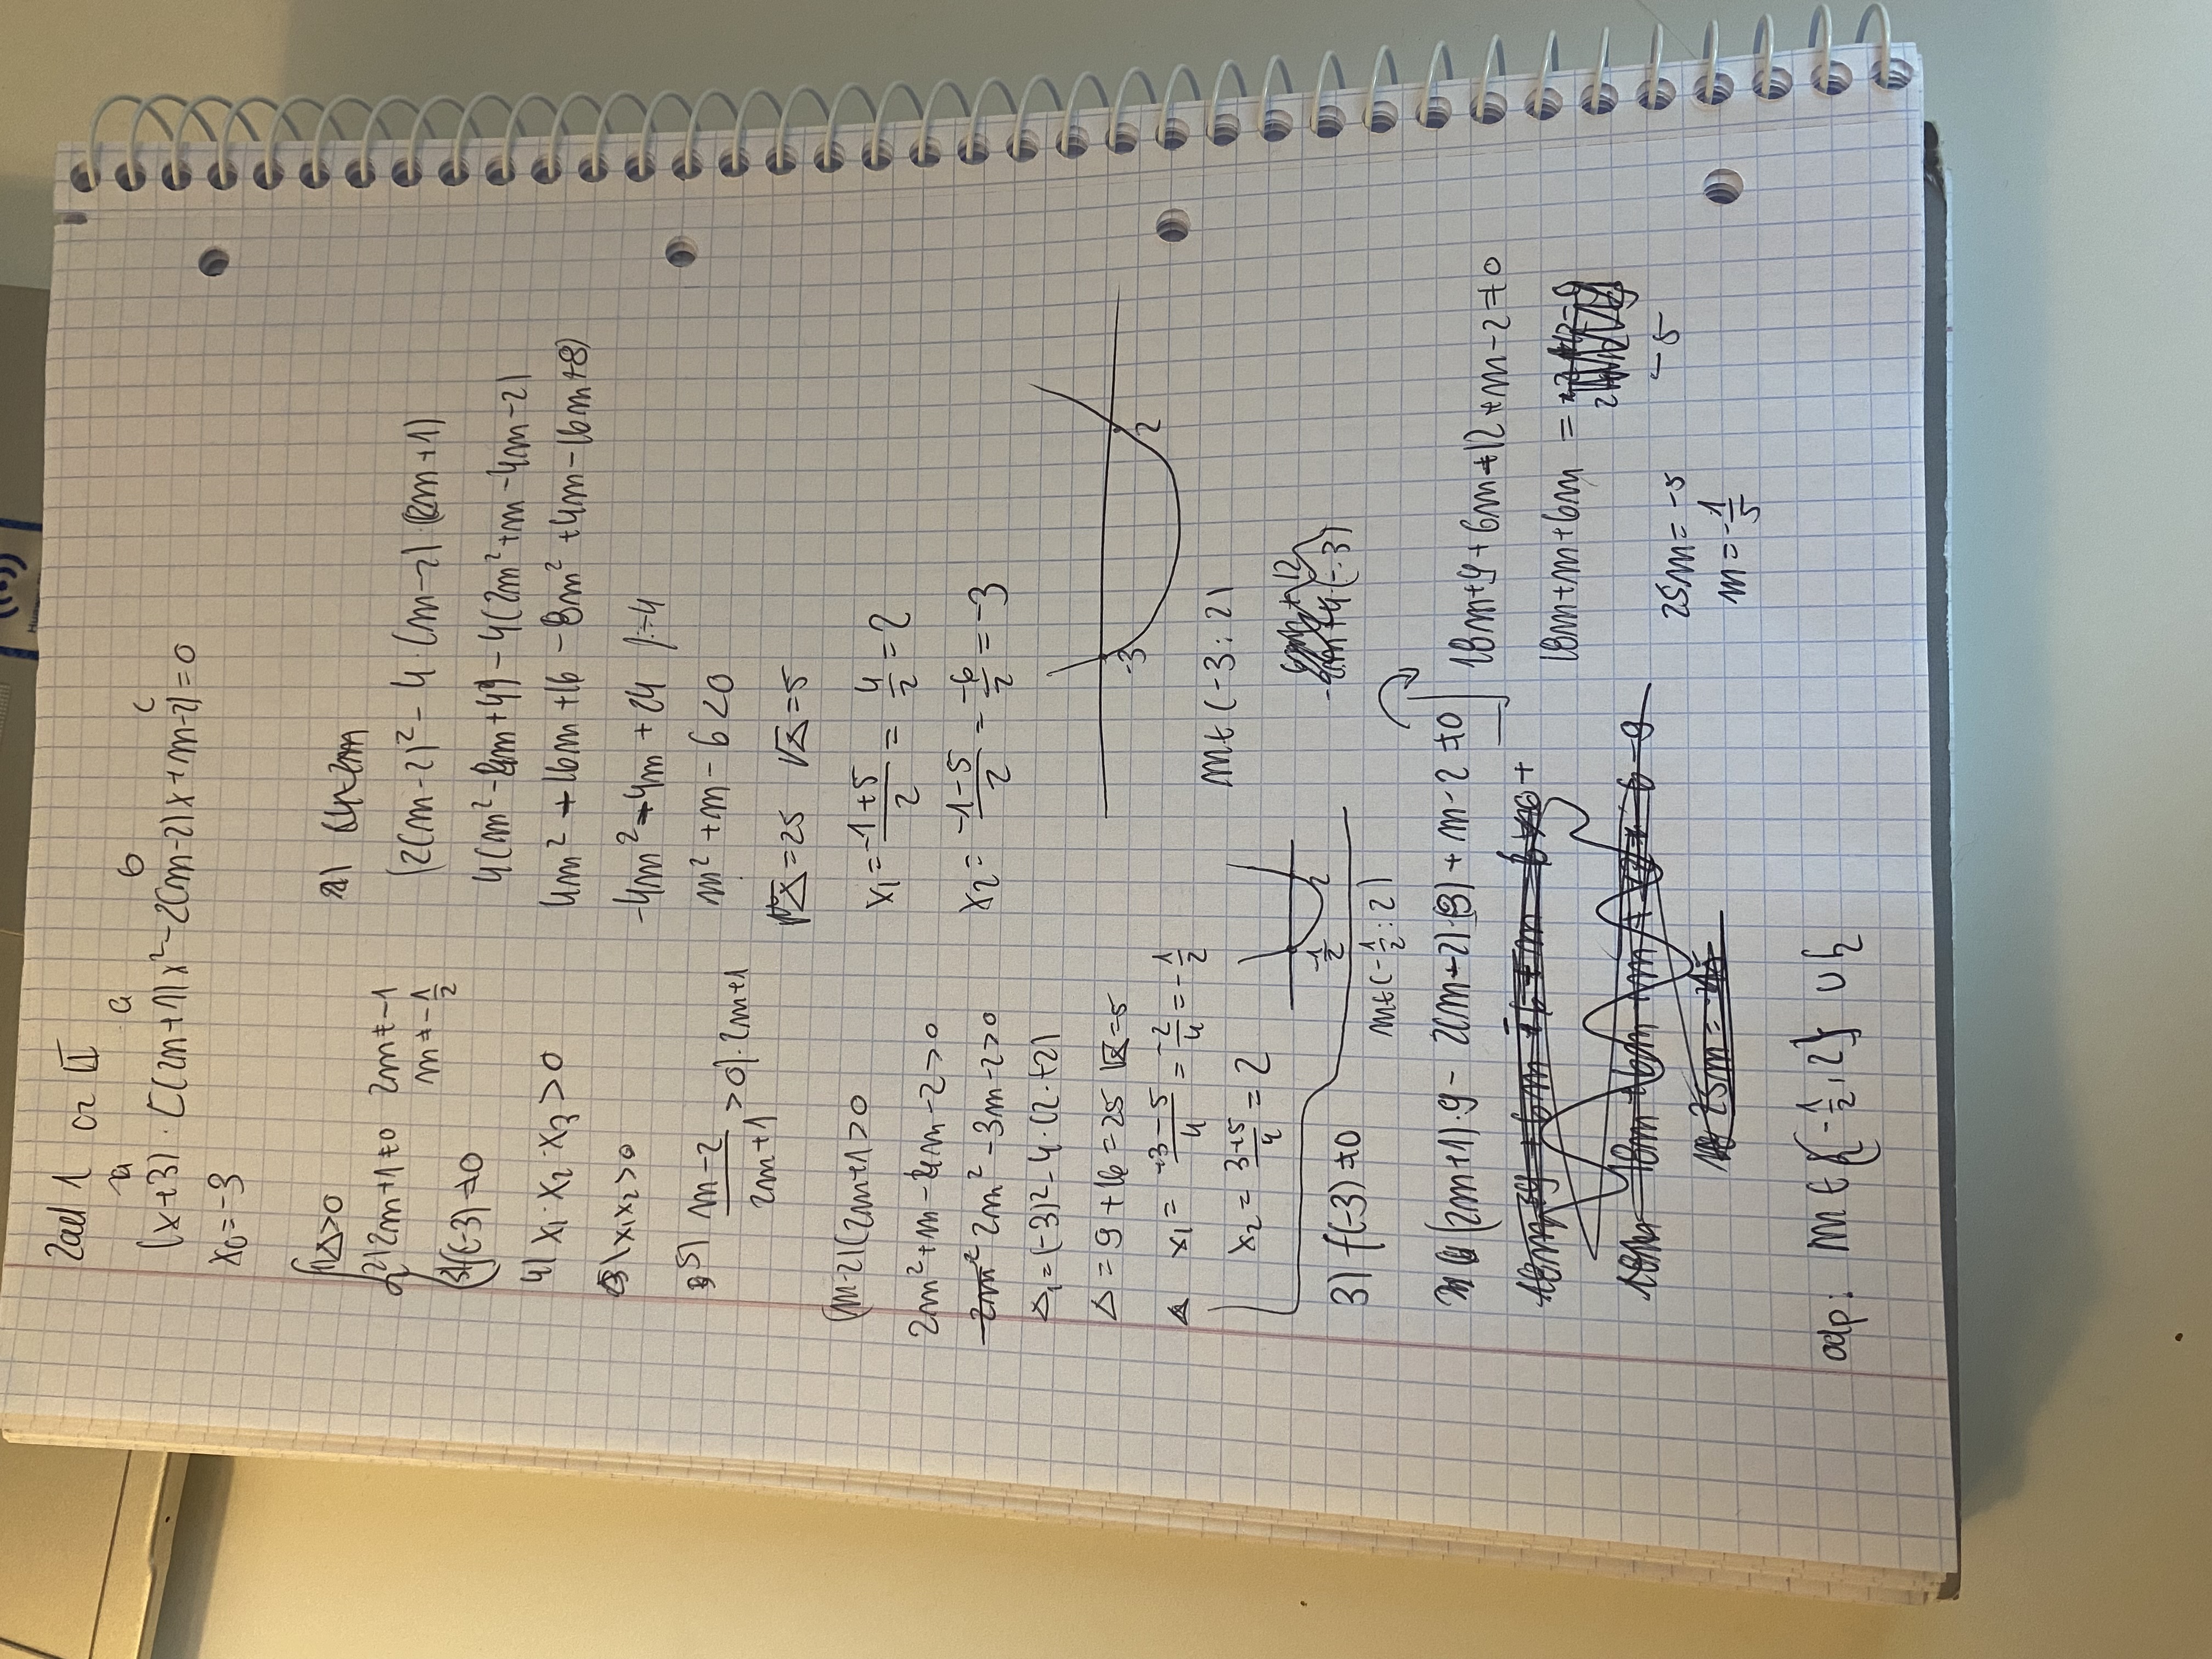 Zad 1 gr II
a b c
(x+3)·[(2m+1)x²-2(m-2)x+m-2]=0
x₀=-3
1) Δ>0
2) 2m+1≠0 2m≠-1
m≠-1/2
3) f(-3)≠0
4) x₁·x₂·x₃>0
x₁x₂>0
5) (m-2)/(2m+1)>0 |·2m+1
(m-2)(2m+1)>0
2m²+m-4m-2>0
2m²-3m-2>0
Δ₁=(-3)²-4·(2·+2)
Δ=9+16=25 √Δ=5
x₁=(+3-5)/4=-2/4=-1/2
x₂=(3+5)/4=2
-1/2 2
m∈(-1/2;2)
(2(m-2)²-4·(m-2)·(2m+1)
4(m²-4m+4)-4(2m²+m-4m-2)
4m²+16m+16-8m²+4m-16m+8)
-4m²-4m+24 /:-4
m²+m-6<0
Δ=25 √Δ=5
x₁=(-1+5)/2=4/2=2
x₂=(-1-5)/2=-6/2=-3
-3 2
m∈(-3;2)
3) f(-3)≠0
(2m+1)·9-2(m-2)·(-3)+m-2≠0
18m+9+6m+12+m-2≠0
18m+m+6m=
-5
25m=-5
m=-1/5
odp: m∈(-1/2;2}∪{